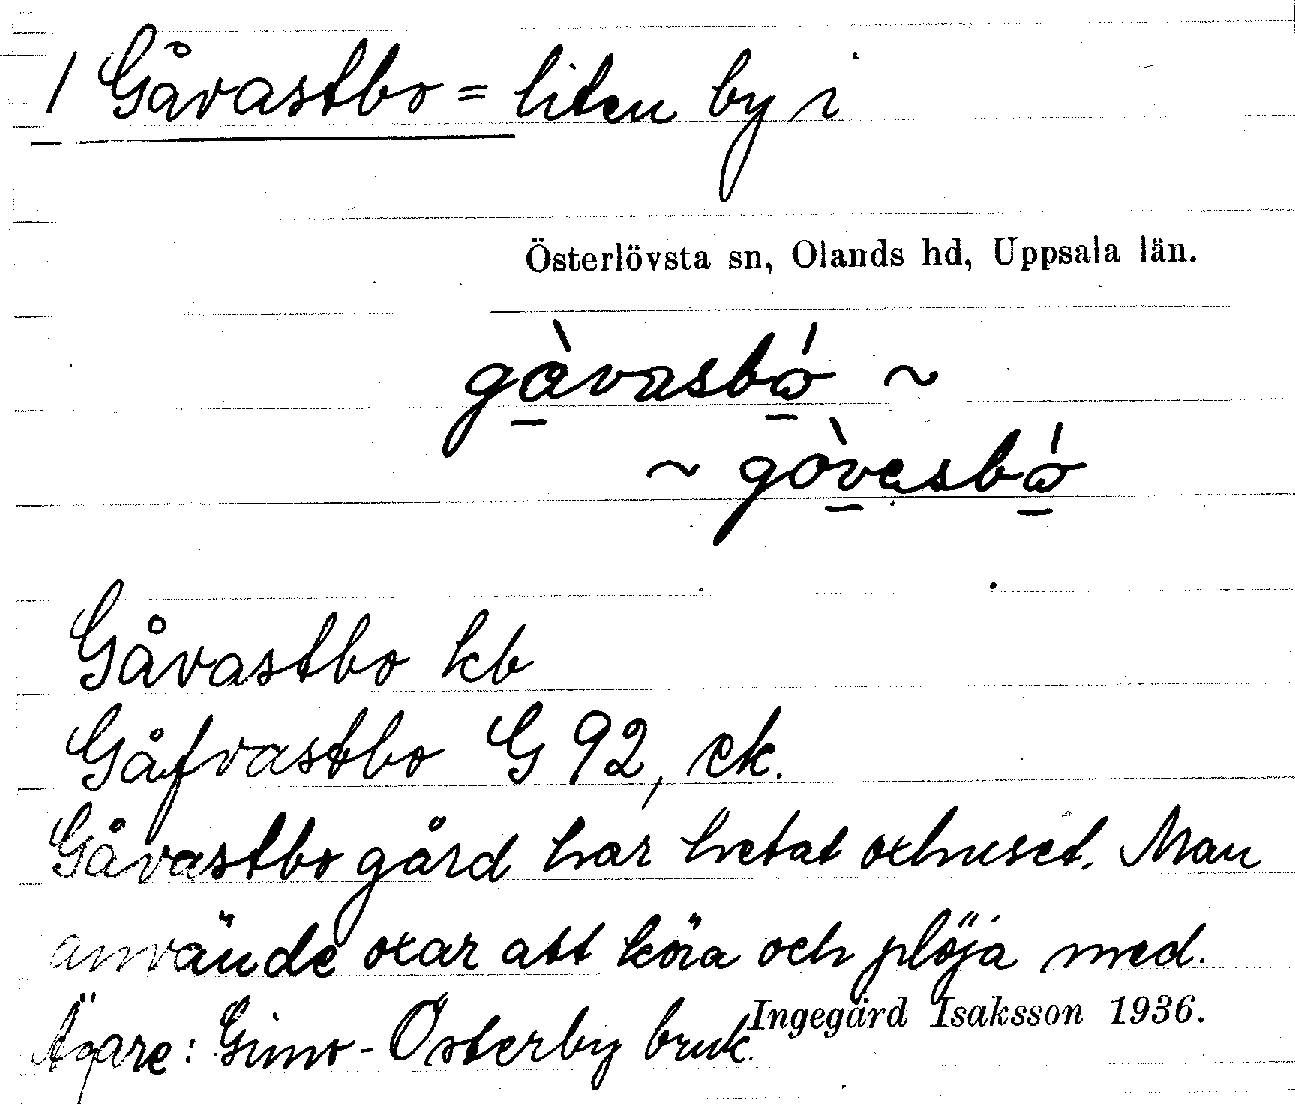 1 Gåvastbo = liten by i
Österlövsta sn, Olands hd, Uppsala län.
gàvasbó ~
~ gòvasbó
Gåvastbo kb
Gåfvastbo G 92, ek.
Gåvastbo gård har hetat oxhuset. Man
använde oxar att köra och plöja med.
Ägare: Gimo-Österby bruk.
Ingegärd Isaksson 1936.